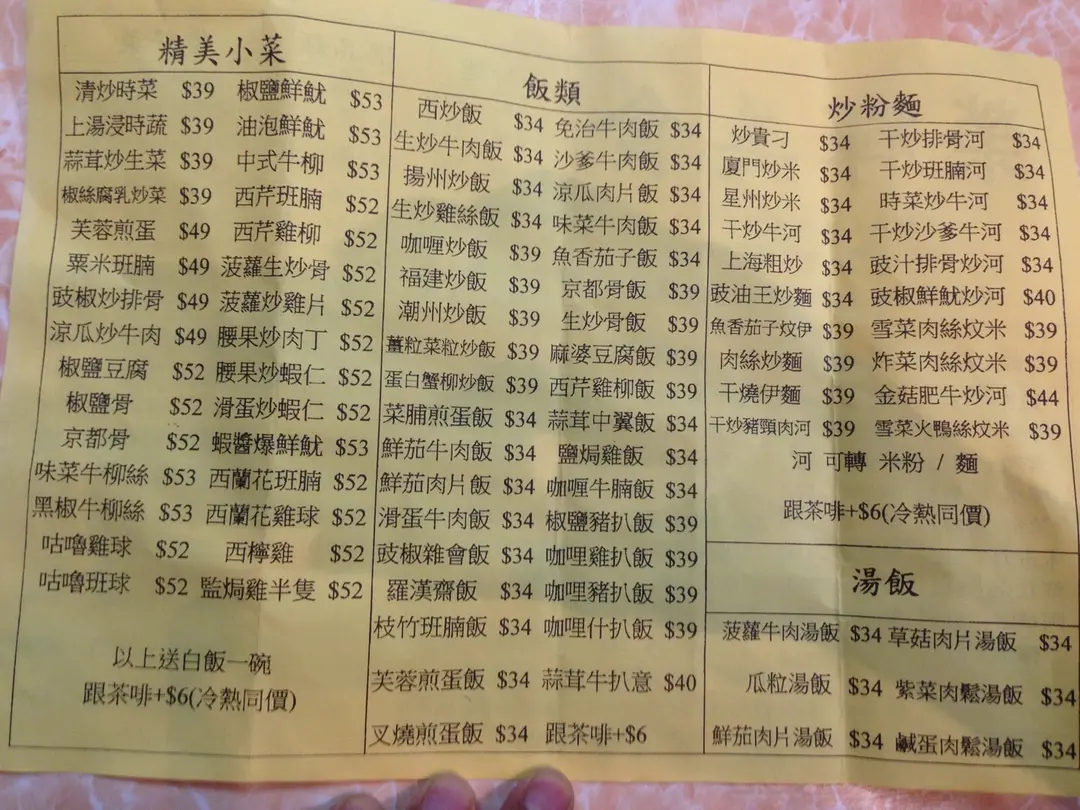 精美小菜
清炒時菜 $39 椒鹽鮮魷 $53
上湯浸時蔬 $39 油泡鮮魷 $53
蒜茸炒生菜 $39 中式牛柳 $53
椒絲腐乳炒菜 $39 西芹班腩 $52
芙蓉煎蛋 $49 西芹雞柳 $52
粟米班腩 $49 菠蘿生炒骨 $52
豉椒炒排骨 $49 菠蘿炒雞片 $52
涼瓜炒牛肉 $49 腰果炒肉丁 $52
椒鹽豆腐 $52 腰果炒蝦仁 $52
椒鹽骨 $52 滑蛋炒蝦仁 $52
京都骨 $52 蝦醬爆鮮魷 $53
味菜牛柳絲 $53 西蘭花班腩 $52
黑椒牛柳絲 $53 西蘭花雞球 $52
咕嚕雞球 $52 西檸雞 $52
咕嚕班球 $52 監焗雞半隻 $52
以上送白飯一碗
跟茶啡+$6(冷熱同價)
飯類
西炒飯 $34 免治牛肉飯 $34
生炒牛肉飯 $34 沙爹牛肉飯 $34
揚州炒飯 $34 涼瓜肉片飯 $34
生炒雞絲飯 $34 味菜牛肉飯 $34
咖喱炒飯 $39 魚香茄子飯 $34
福建炒飯 $39 京都骨飯 $39
潮州炒飯 $39 生炒骨飯 $39
薑粒菜粒炒飯 $39 麻婆豆腐飯 $39
蛋白蟹柳炒飯 $39 西芹雞柳飯 $39
菜脯煎蛋飯 $34 蒜茸中翼飯 $34
鮮茄牛肉飯 $34 鹽焗雞飯 $34
鮮茄肉片飯 $34 咖喱牛腩飯 $34
滑蛋牛肉飯 $34 椒鹽豬扒飯 $39
豉椒雜會飯 $34 咖哩雞扒飯 $39
羅漢齋飯 $34 咖哩豬扒飯 $39
枝竹班腩飯 $34 咖哩什扒飯 $39
芙蓉煎蛋飯 $34 蒜茸牛扒意 $40
叉燒煎蛋飯 $34 跟茶啡+$6
炒粉麵
炒貴刁 $34 干炒排骨河 $34
廈門炒米 $34 干炒班腩河 $34
星州炒米 $34 時菜炒牛河 $34
干炒牛河 $34 干炒沙爹牛河 $34
上海粗炒 $34 豉汁排骨炒河 $34
豉油王炒麵 $34 豉椒鮮魷炒河 $40
魚香茄子炆伊 $39 雪菜肉絲炆米 $39
肉絲炒麵 $39 炸菜肉絲炆米 $39
干燒伊麵 $39 金菇肥牛炒河 $44
干炒豬頸肉河 $39 雪菜火鴨絲炆米 $39
河 可轉 米粉 / 麵
跟茶啡+$6(冷熱同價)
湯飯
菠蘿牛肉湯飯 $34 草菇肉片湯飯 $34
瓜粒湯飯 $34 紫菜肉鬆湯飯 $34
鮮茄肉片湯飯 $34 鹹蛋肉鬆湯飯 $34